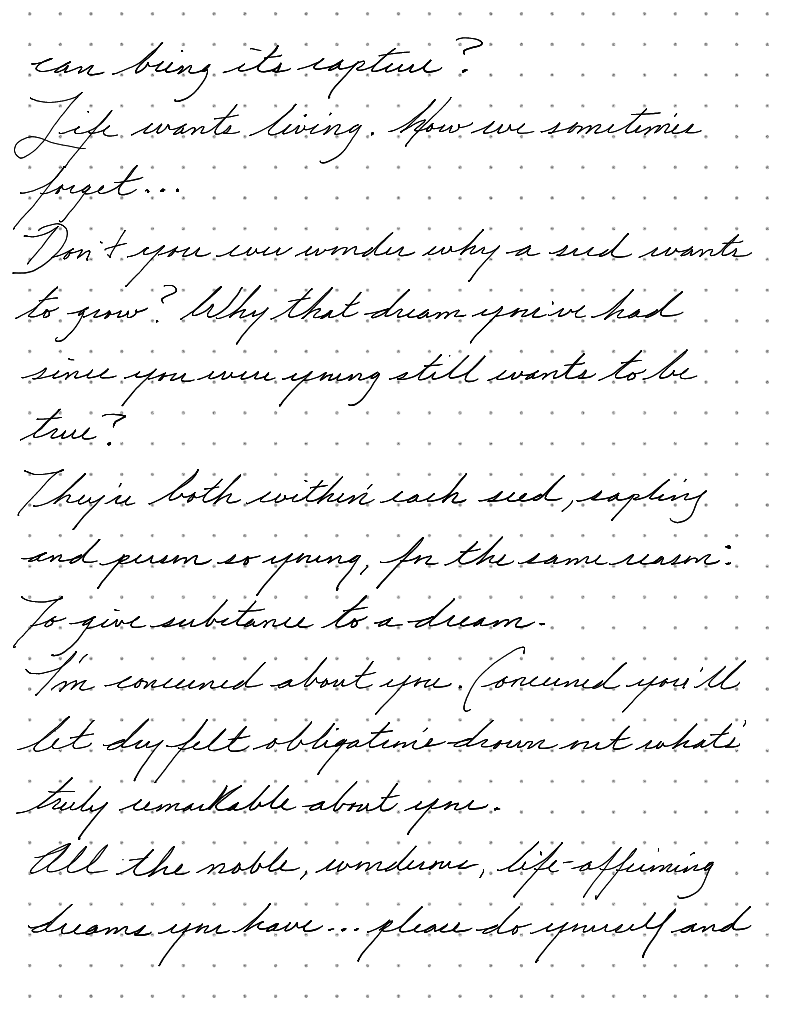 can bring its capture?
Life wants living. How we sometimes
forget...
Don't you ever wonder why a seed wants
to grow? Why that dream you've had
since you were young still wants to be
true?
They're both within each seed, sapling
and person so young, for the same reason:
To give substance to a dream.
I'm concerned about you. Concerned you'll
let dry felt obligations drown out what's
truly remarkable about you.
All the noble, wonderous, life-affirming
dreams you have... please do yourself and